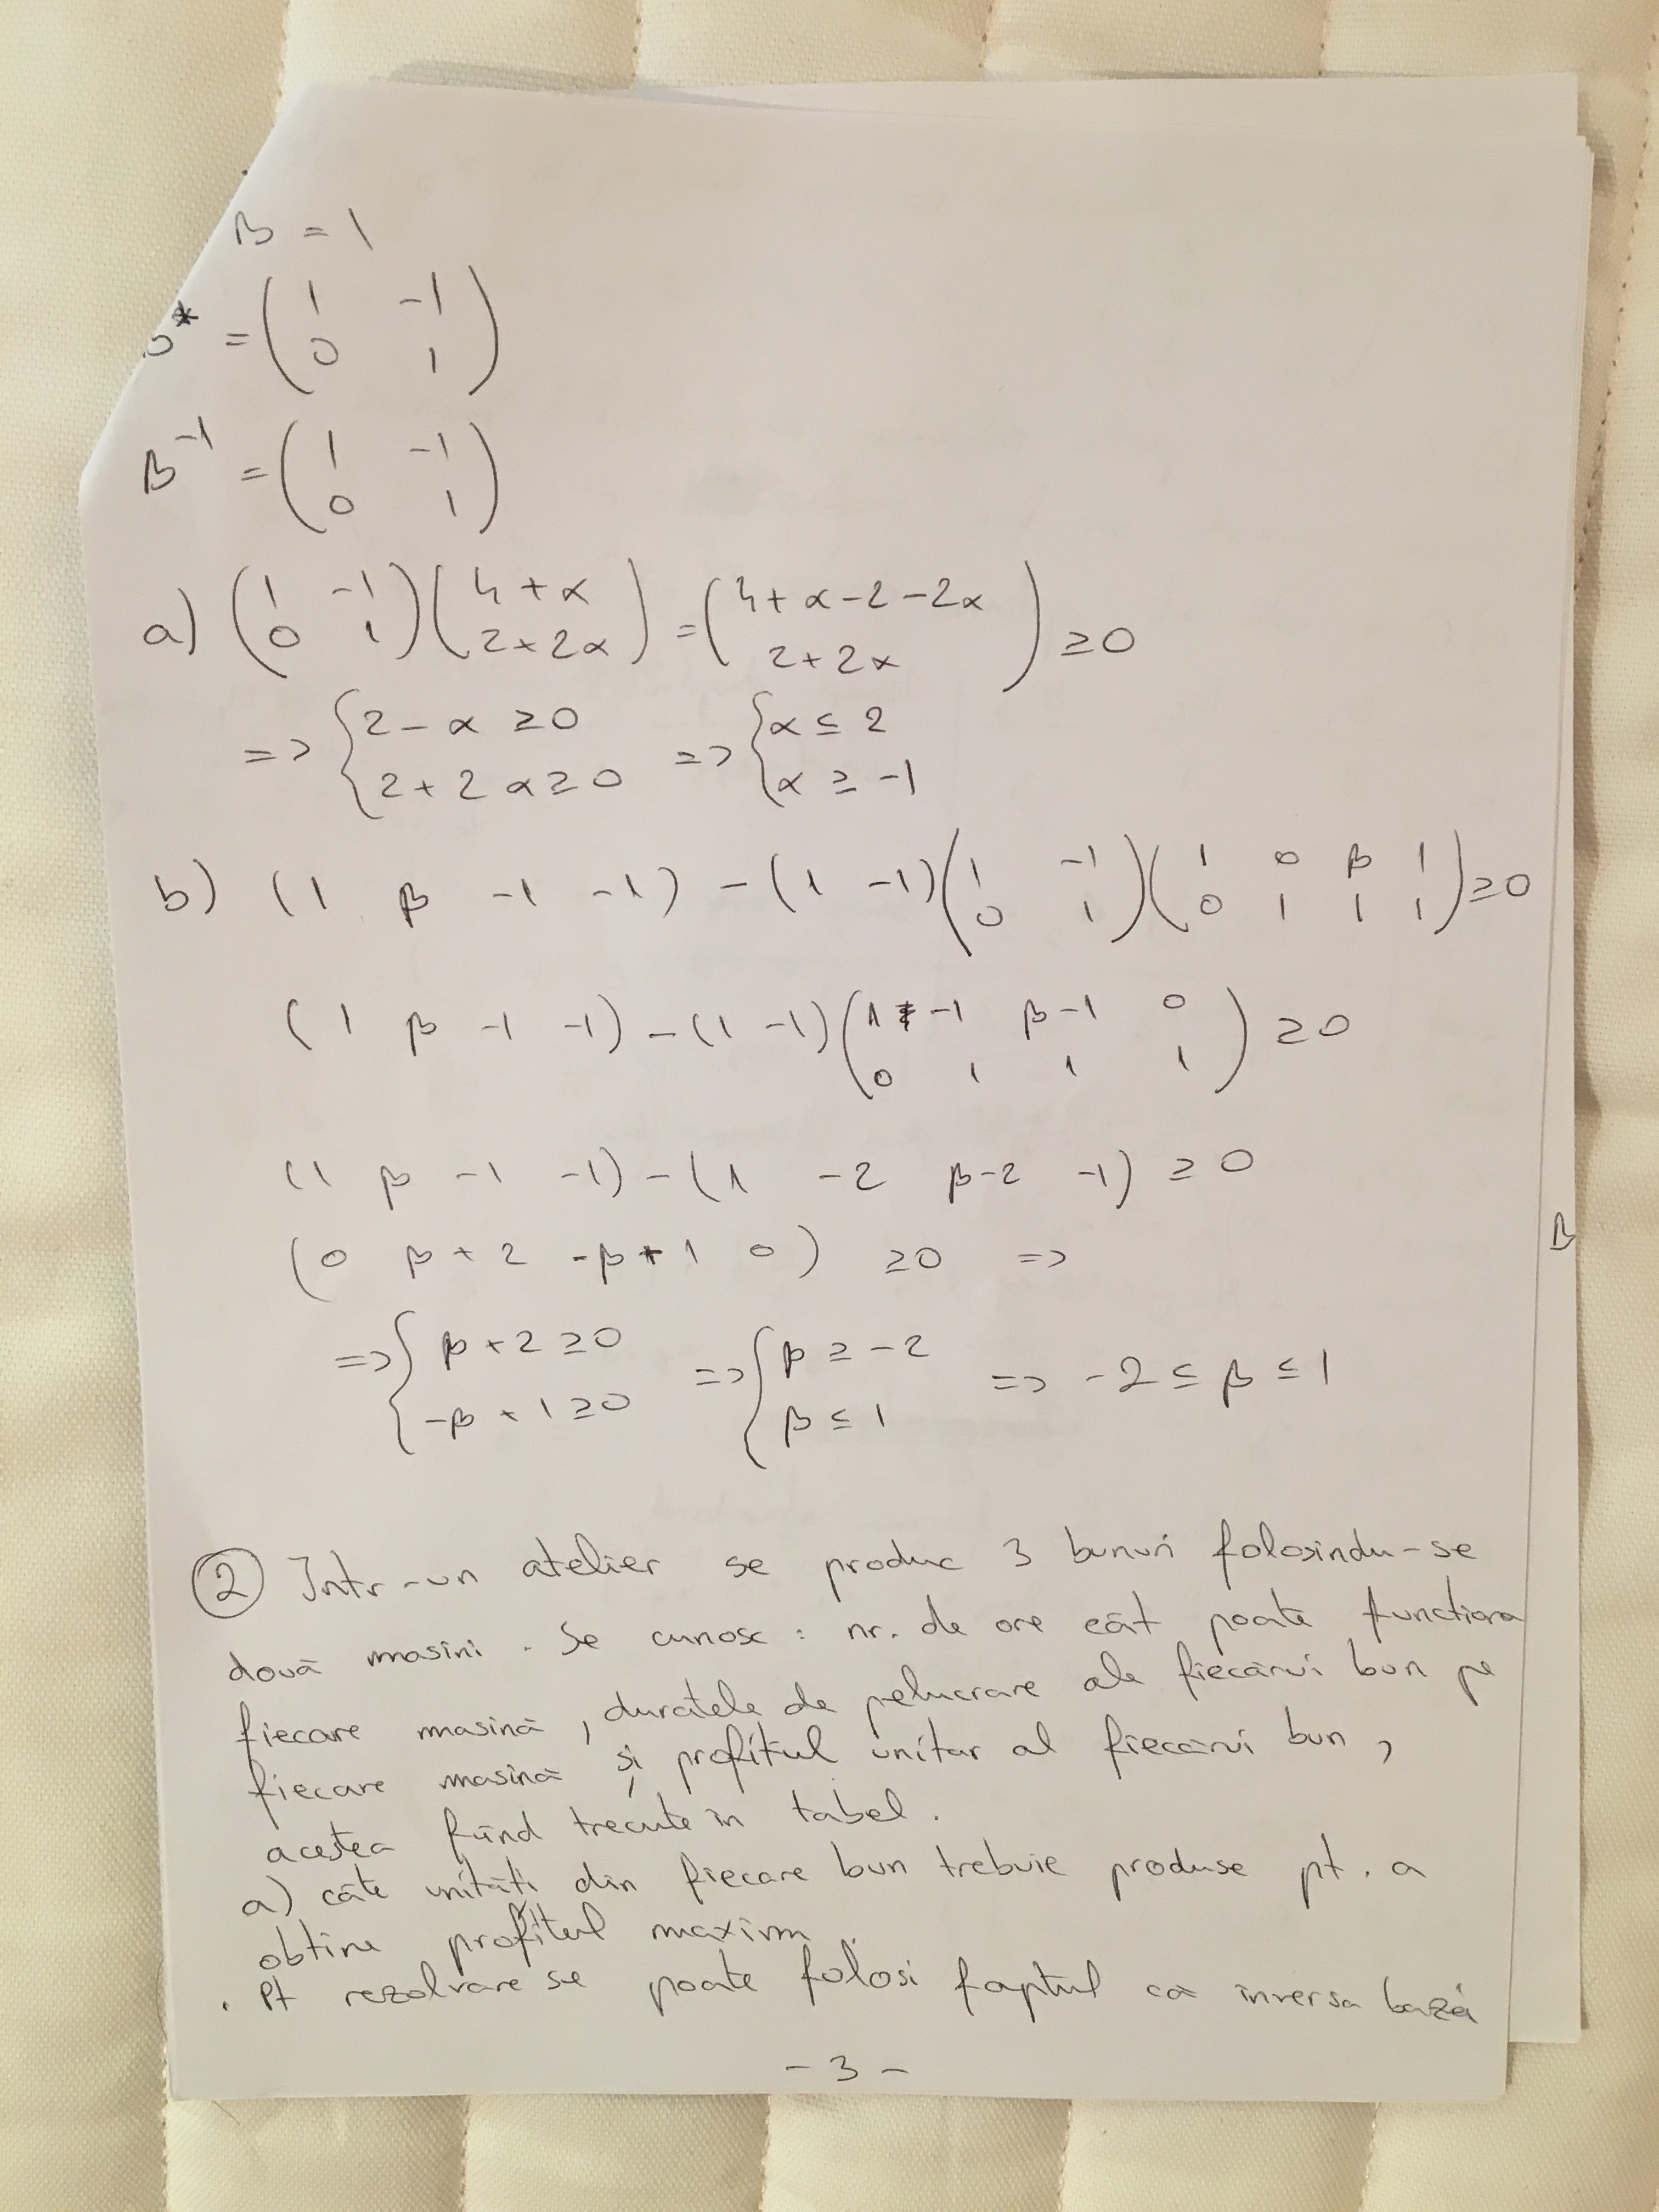 B = 1
* = ( 1 -1 ; 0 1 )
B^-1 = ( 1 -1 ; 0 1 )
a) ( 1 -1 ; 0 1 ) ( 4+α ; 2+2α ) = ( 4+α-2-2α ; 2+2α ) ≥0
=> { 2-α ≥0 ; 2+2α≥0 => { α ≤ 2 ; α ≥ -1
b) (1 β -1 -1) - (1 -1) ( 1 -1 ; 0 1 ) ( 1 0 β 1 ; 0 1 1 1 ) ≥0
(1 β -1 -1) - (1 -1) ( 1 -1 β-1 0 ; 0 1 1 1 ) ≥0
(1 β -1 -1) - (1 -2 β-2 -1) ≥ 0
(0 β+2 -β+1 0) ≥0 =>
B
=> { β+2 ≥0 ; -β+1≥0 => { β ≥ -2 ; β ≤ 1 => -2 ≤ β ≤ 1
② Intr-un atelier se produc 3 bunuri folosindu-se
două masini. Se cunosc: nr. de ore cât poate functiona
fiecare masină, duratele de pelucrare ale fiecărui bun pe
fiecare masină și profitul unitar al fiecărui bun,
acestea fiind trecute în tabel.
a) câte unități din fiecare bun trebuie produse pt. a
obtine profitul maxim.
. Pt rezolvare se poate folosi faptul că inversa bazá
- 3 -